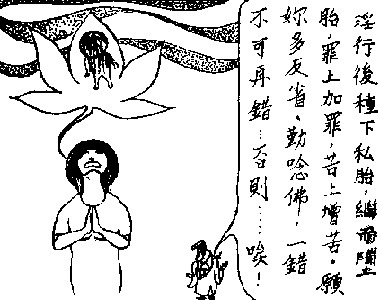 淫行後種下私胎，繼而墮
胎，罪上加罪，苦上增苦。願
妳多反省，勤唸佛，一錯
不可再錯…否則……唉！